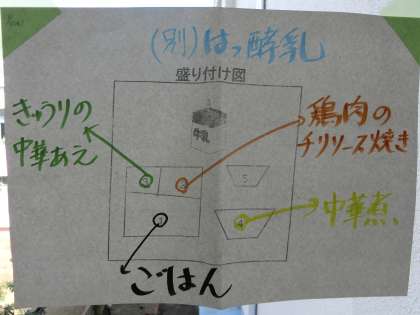 (別)はっ酵乳
盛り付け図
牛乳
きゅうりの
中華あえ
鶏肉の
チリソース焼き
3
2
5
1
4
中華煮
ごはん